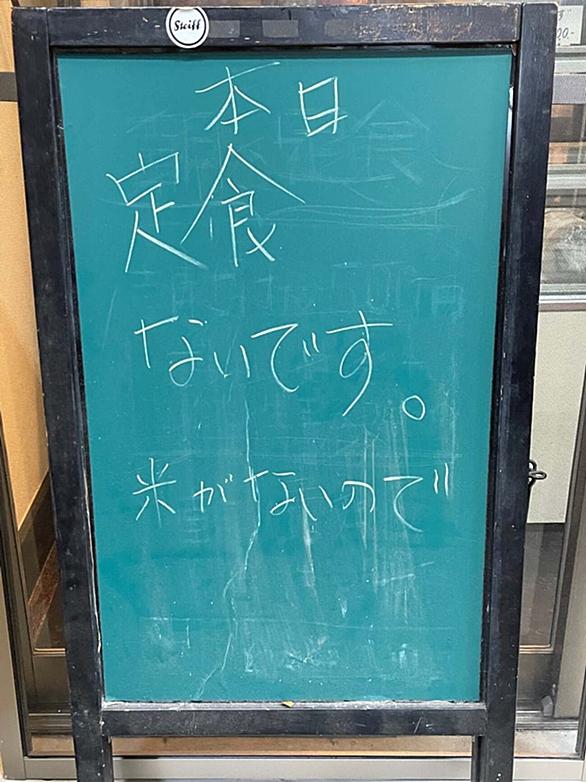 Steiff
本日
定食
ないです。
米がないので